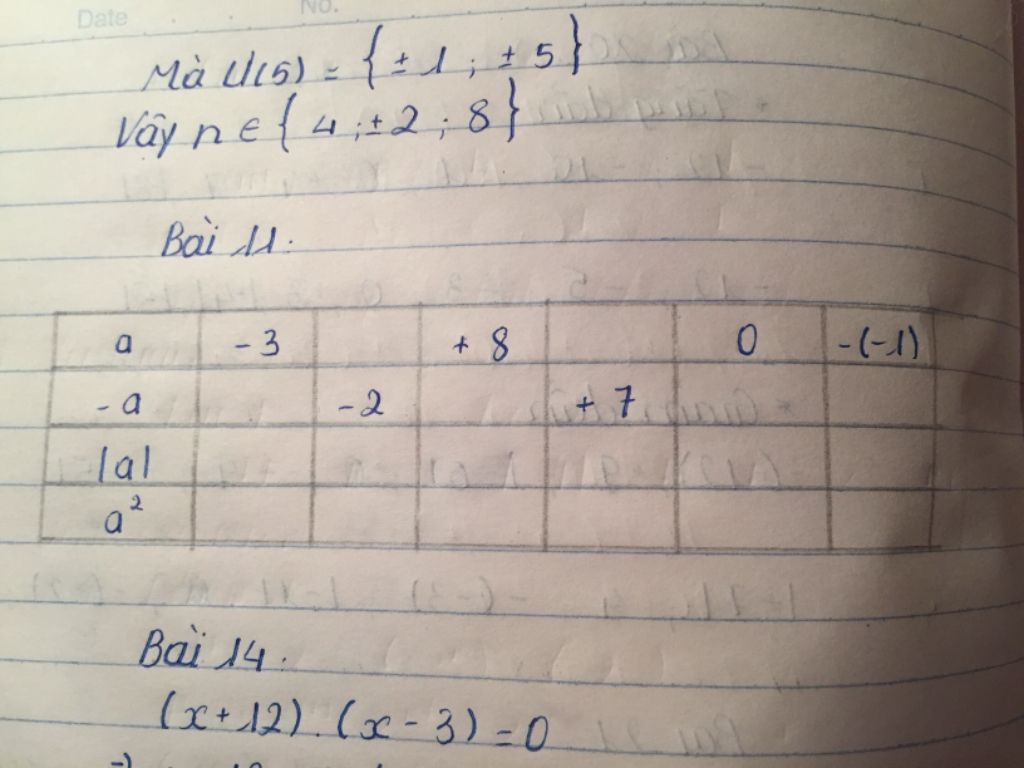 Date No.
Mà Ư(5) = { ± 1 ; ± 5 }
Vậy n ∈ { 4 ; ± 2 ; 8 }
Bài 11.
a -3 + 8 0 -(-1)
- a - 2 + 7
|a|
a²
Bài 14.
(x + 12) . (x - 3) = 0